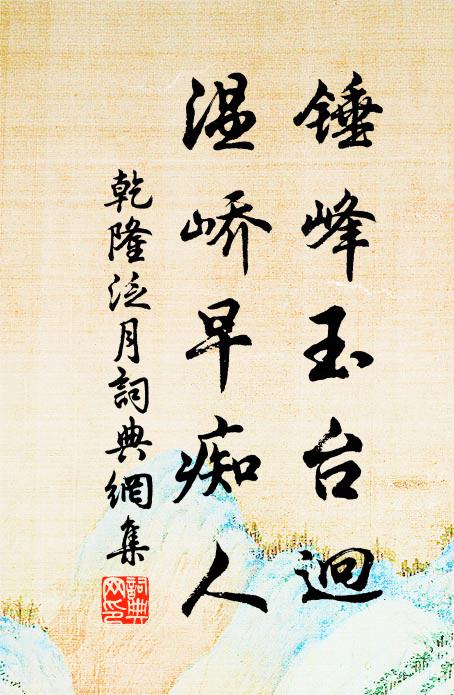 锤峰玉台迥
温峤早痴人
乾隆泛月詞典網集
詞典
网印